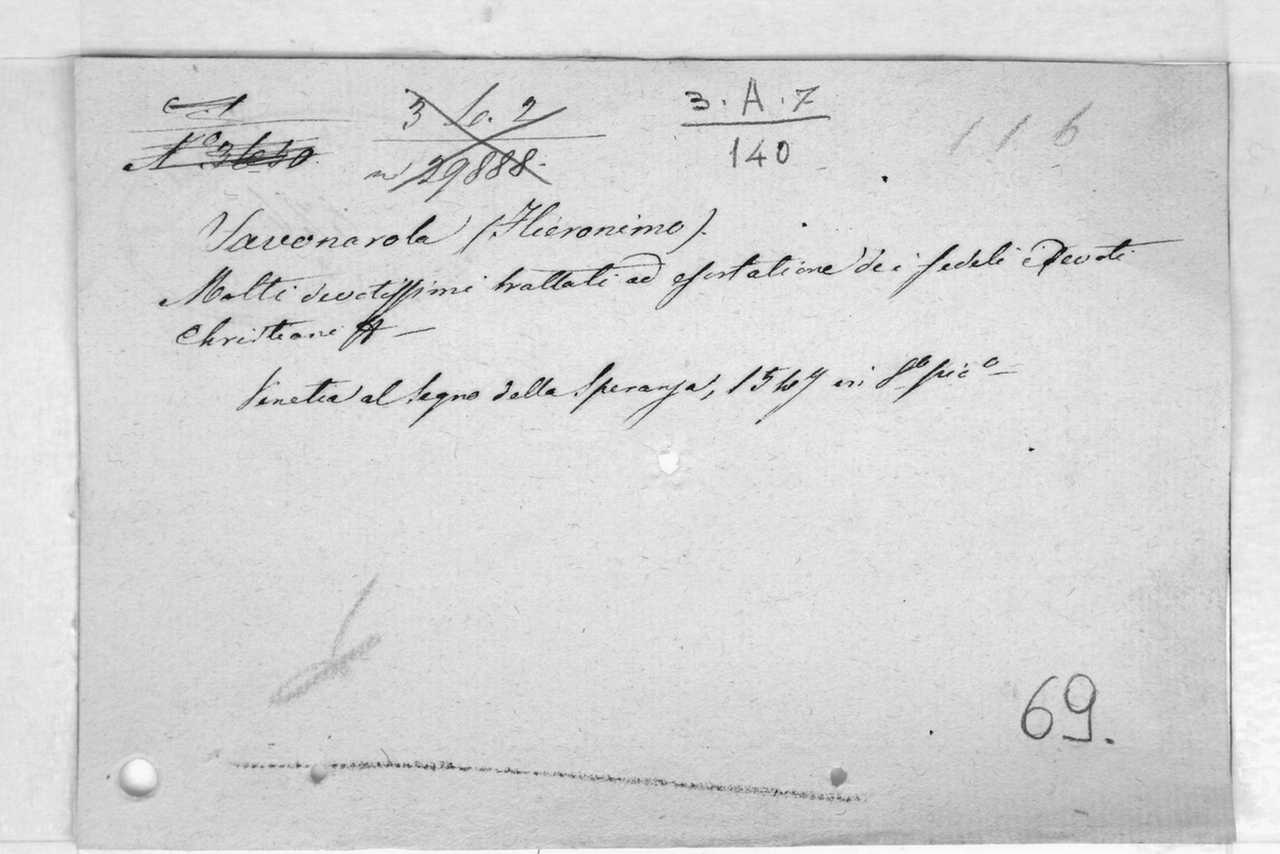 3 . A . 7
140
116
n° 29888.
Savonarola (Hieronimo).
Molti devotissimi trattati ad esortatione dei fedeli e Devoti
Christiani
Venetia al segno della Speranza, 1547 in 8º picº
69.